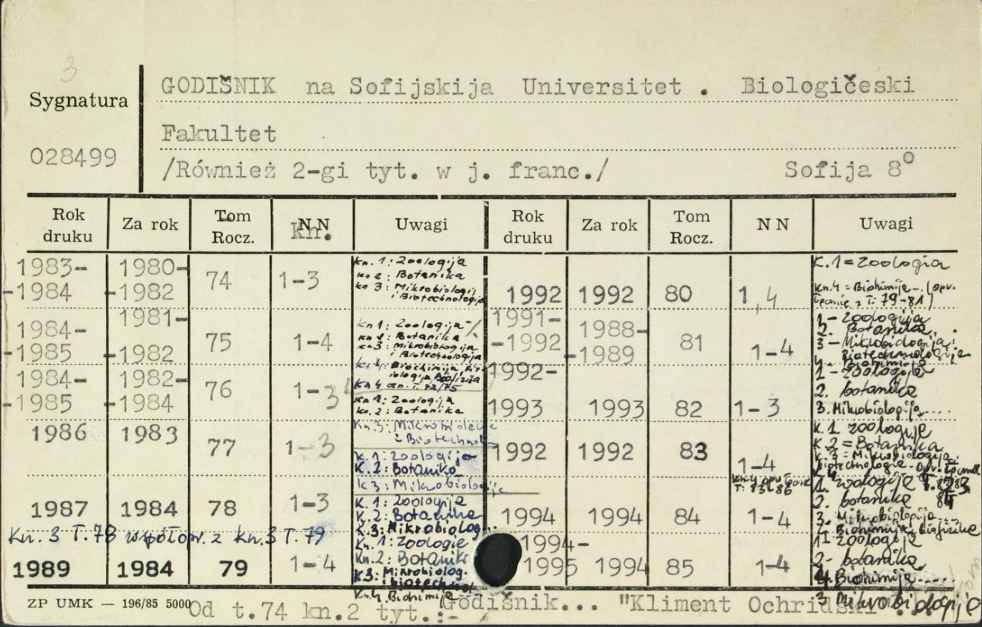 3
Sygnatura
028499
GODIŠNIK na Sofijskija Universitet . Biologičeski
Fakultet
/Również 2-gi tyt. w j. franc./ Sofija 8°
Rok druku Za rok Tom Rocz. NN kn. Uwagi Rok druku Za rok Tom Rocz. NN Uwagi
1983-1984 1980-1982 74 1-3
kn. 1: Zoologija
kn 2: Botanika
kn 3: Mikrobiologij
i Biotechnologija
1984-1985 1981-1982 75 1-4
kn 1: Zoologija
kn 2: Botanika
kn 3: Mikrobiologija
i Biotechnologija
1984-1985 1982-1984 76 1-3
kn 1: Zoologija
kn. 2: Botanika
1986 1983 77 1-3
K. 1: Zoologija
K. 2: Botanika
K 3: Mikrobiologije
1987 1984 78 1-3
K. 1: Zoologija
K. 2: Botanika
K. 3: Mikrobiolog.
Kn. 3 T. 78 współopr. z kn. 3 T. 79
1989 1984 79 1-4
Kn. 1: Zoologie
Kn. 2: Botanik
K 3: Mikrobiolog.
biotechnol
Kn. 4 Biohimija
1992 1992 80 1,4
K. 1 = Zoologia
kn. 4 = Biohimije (opr.
łącznie z T. 79-81)
1991-1992 1988-1989 81 1-4
1- Zoologija
2. Botanika
3 - Mikrobiologija i
Biotechnologije
4. Biohimija
1992-1993 1993 82 1-3
1- Zoologije
2. botanika
3. Mikrobiologija....
1992 1992 83 1-4
K. 1 zoologije
K. 2 = Botanika
K. 3 = Mikrobiologija.
biotechnologie
1994 1994 84 1-4
1. zoologije
2. botanika
3. Mikrobiologija
1994-1995 1994 85 1-4
1. zoologije
2- botanika
4. Biohimija....
3 Mikrobiologije
ZP UMK — 196/85 5000
Od t.74 kn.2 tyt.:- Godišnik... "Kliment Ochridski